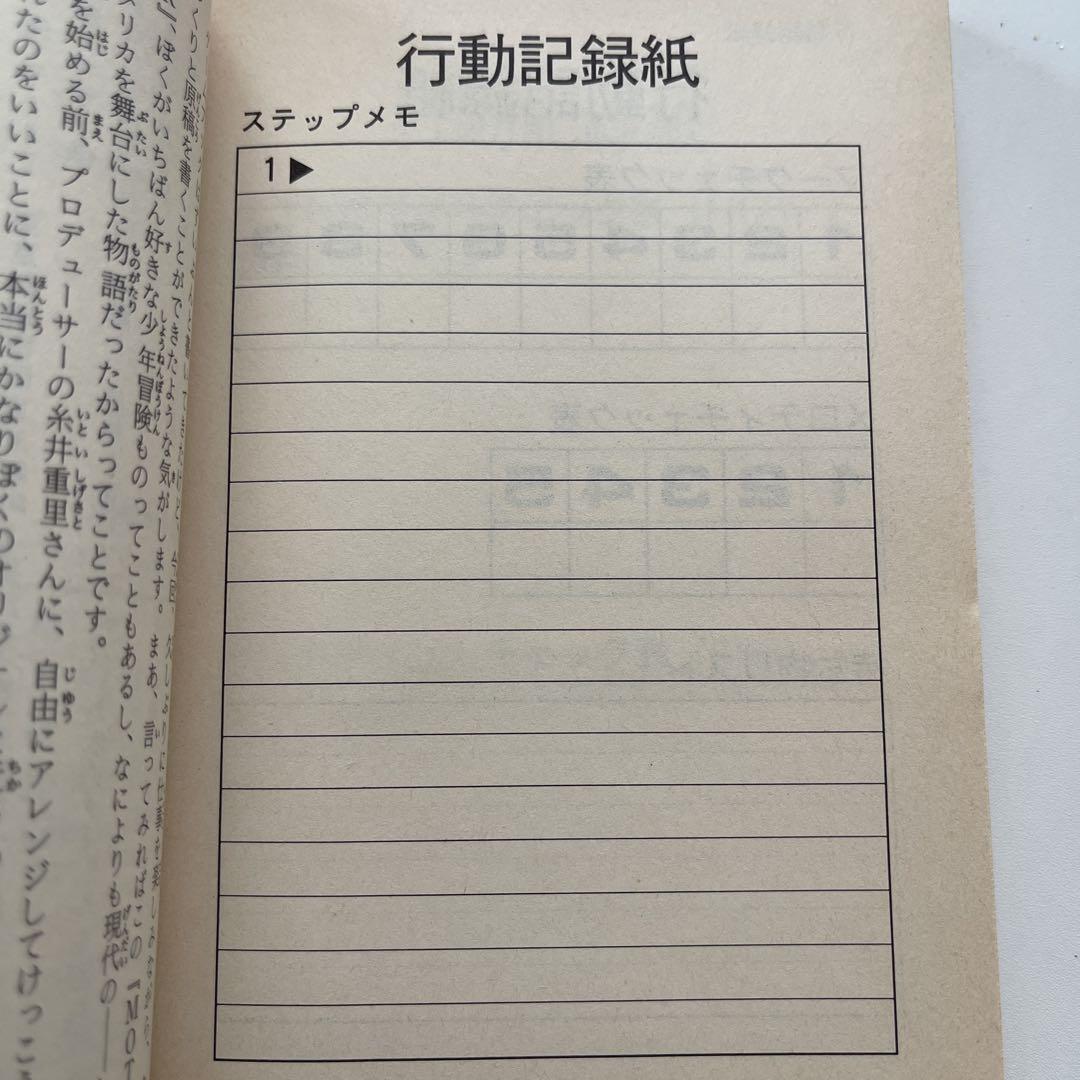 行動記録紙
ステップメモ
1▶
くりと原稿を書くことができたような気がします。まあ、言ってみればこの『MOT
、ぼくがいちばん好きな少年冒険ものってこともあるし、なによりも現代の――
メリカを舞台にした物語だったからってことです。
を始める前、プロデューサーの糸井重里さんに、自由にアレンジしてけっこ
れたのをいいことに、本当にかなりぼくのオリジ